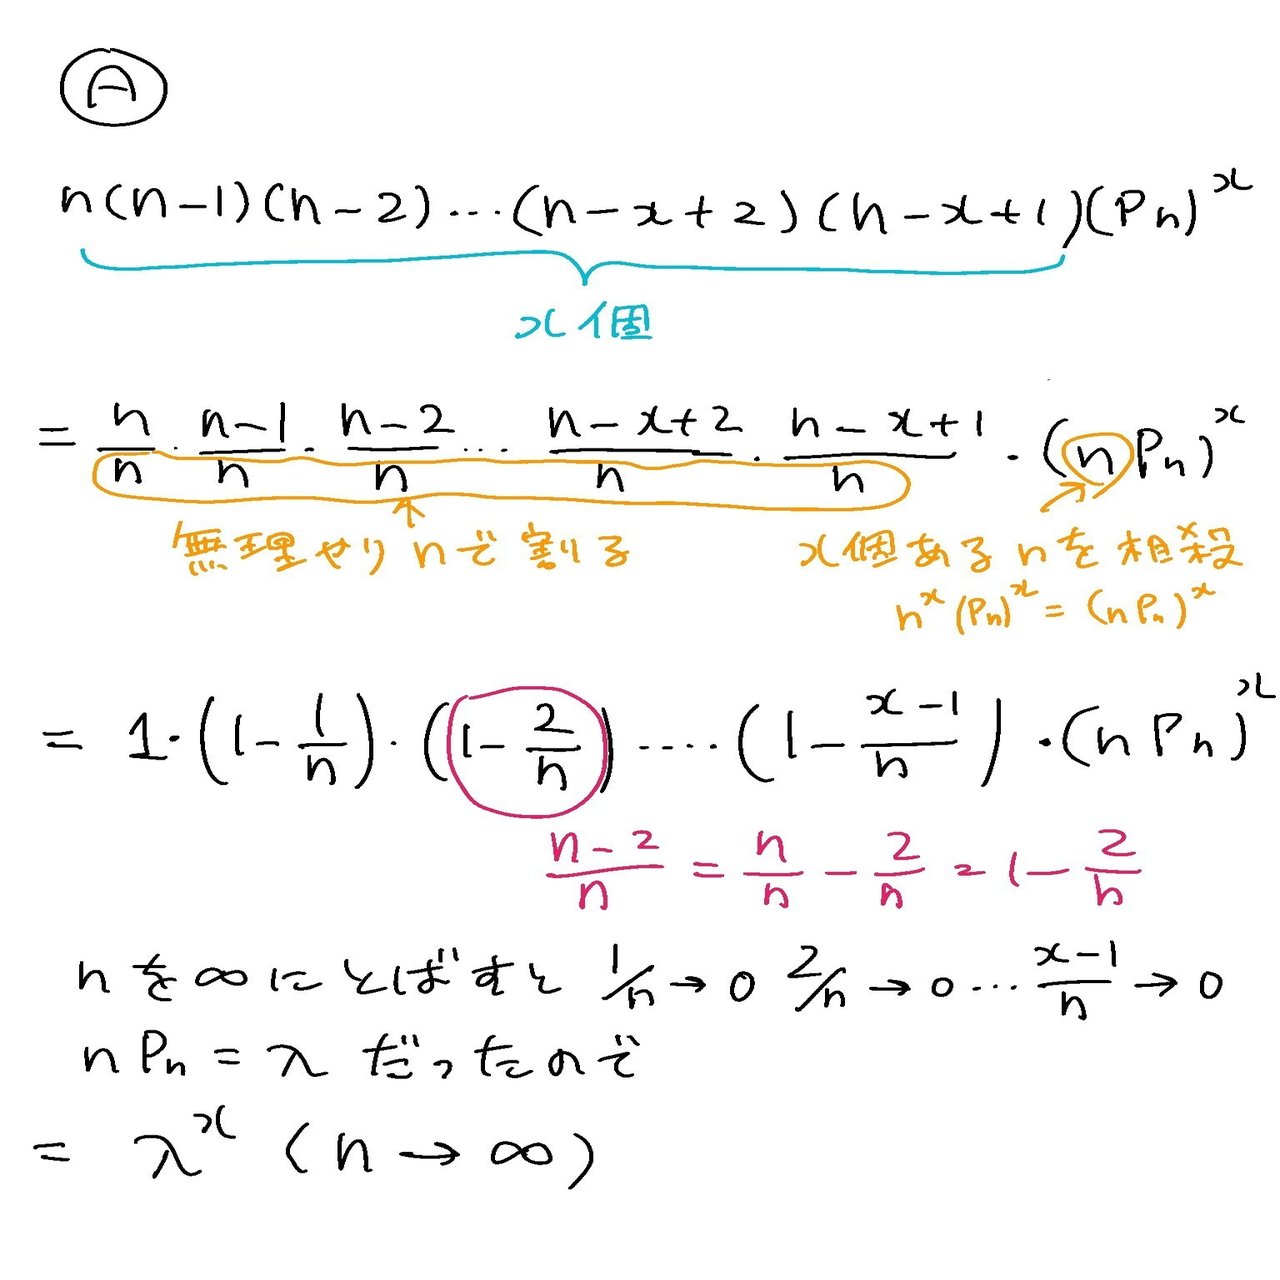 A
n(n-1)(n-2)…(n-x+2)(n-x+1)(Pn)^x
x個
= n/n · (n-1)/n · (n-2)/n … (n-x+2)/n · (n-x+1)/n · (nPn)^x
無理やりnで割る
x個あるnを相殺
n^x(Pn)^x = (nPn)^x
= 1·(1-1/n)·(1-2/n)····(1-(x-1)/n)·(nPn)^x
(n-2)/n = n/n - 2/n = 1-2/n
nを∞にとばすと 1/n→0 2/n→0…(x-1)/n→0
nPn=λ だったので
= λ^x (n→∞)